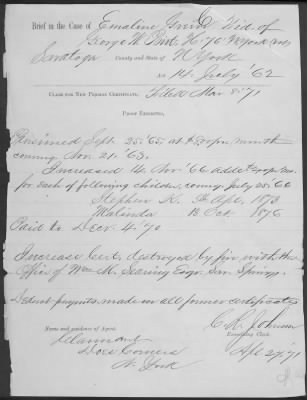 Brief in the Case of Emaline Wid. of
George W. H. 76 N York
Saratoga County and State of N York
Act 14 July '62
Claim for New Pension Certificate, Filed Mar 5. '71
Proof Exhibited,
Pensioned Sept. 25. '65, at $8.00 pr month
comncg. Nov. 21. '63.
Increased 14 Nov. '66
for each of following children, comncg. July 25. 66
Stephen R. 5th Apr. 1873
Malinda Oct. 1876
Paid to Decr. 4. '70
Increase Cert. destroyed by fire with the
Office of Wm. M. Searing Esqr. Sar. Springs.
Deduct paymts. made on all former certificates
C. R. Johnson
Examining Clerk.
Name and residence of Agent.
Claimant
Apl 27, '71
Dove Corners
N. York